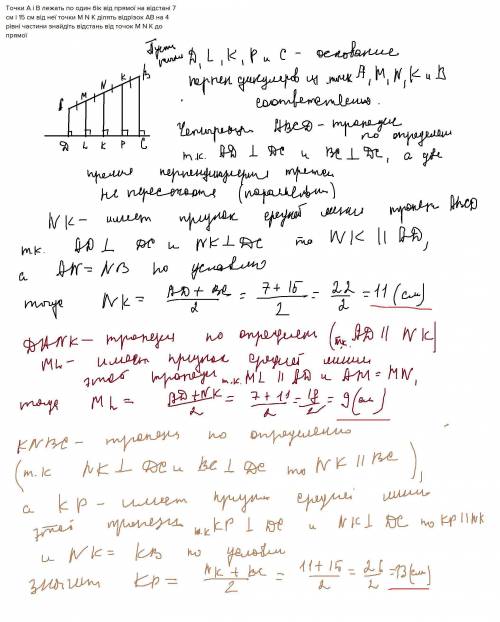 Точки А і В лежать по один бік від прямої на відстані 7
см і 15 см від неї точки M N K ділять відрізок АВ на 4
рівні частини знайдіть відстань від точок M N K до
прямої
Пусть
точки D, L, K, P и C - основание
перпендикуляров из точек A, M, N, K и B
соответственно.
M N K B
D L K P C
Четырехуг ABCD - трапеция
по определен
т.к. AD ⊥ DC и BC ⊥ DC, а две
прямые перпендикулярн третьей
не пересекаются (параллельны)
NK - имеет признак средней линии трапец ABCD
т.к. AD ⊥ DC и NK ⊥ DC то NK || AD,
а AN = NB по условию
тогда NK = AD + BC / 2 = 7 + 15 / 2 = 22 / 2 = 11 (см)
DANK - трапеция по определен (т.к. AD || NK)
ML - имеет признак средней линии
этой трапеции т.к. ML || AD и AM = MN,
тогда ML = AD + NK / 2 = 7 + 11 / 2 = 18 / 2 = 9 (см)
KNBC - трапец по определению
(т.к NK ⊥ DC и BC ⊥ DC то NK || BC),
а KP - имеет признак средней линии
этой трапеции т.к KP ⊥ DC и NK ⊥ DC то KP || NK
и NK = KB по условию
значит KP = NK + BC / 2 = 11 + 15 / 2 = 26 / 2 = 13 (см)